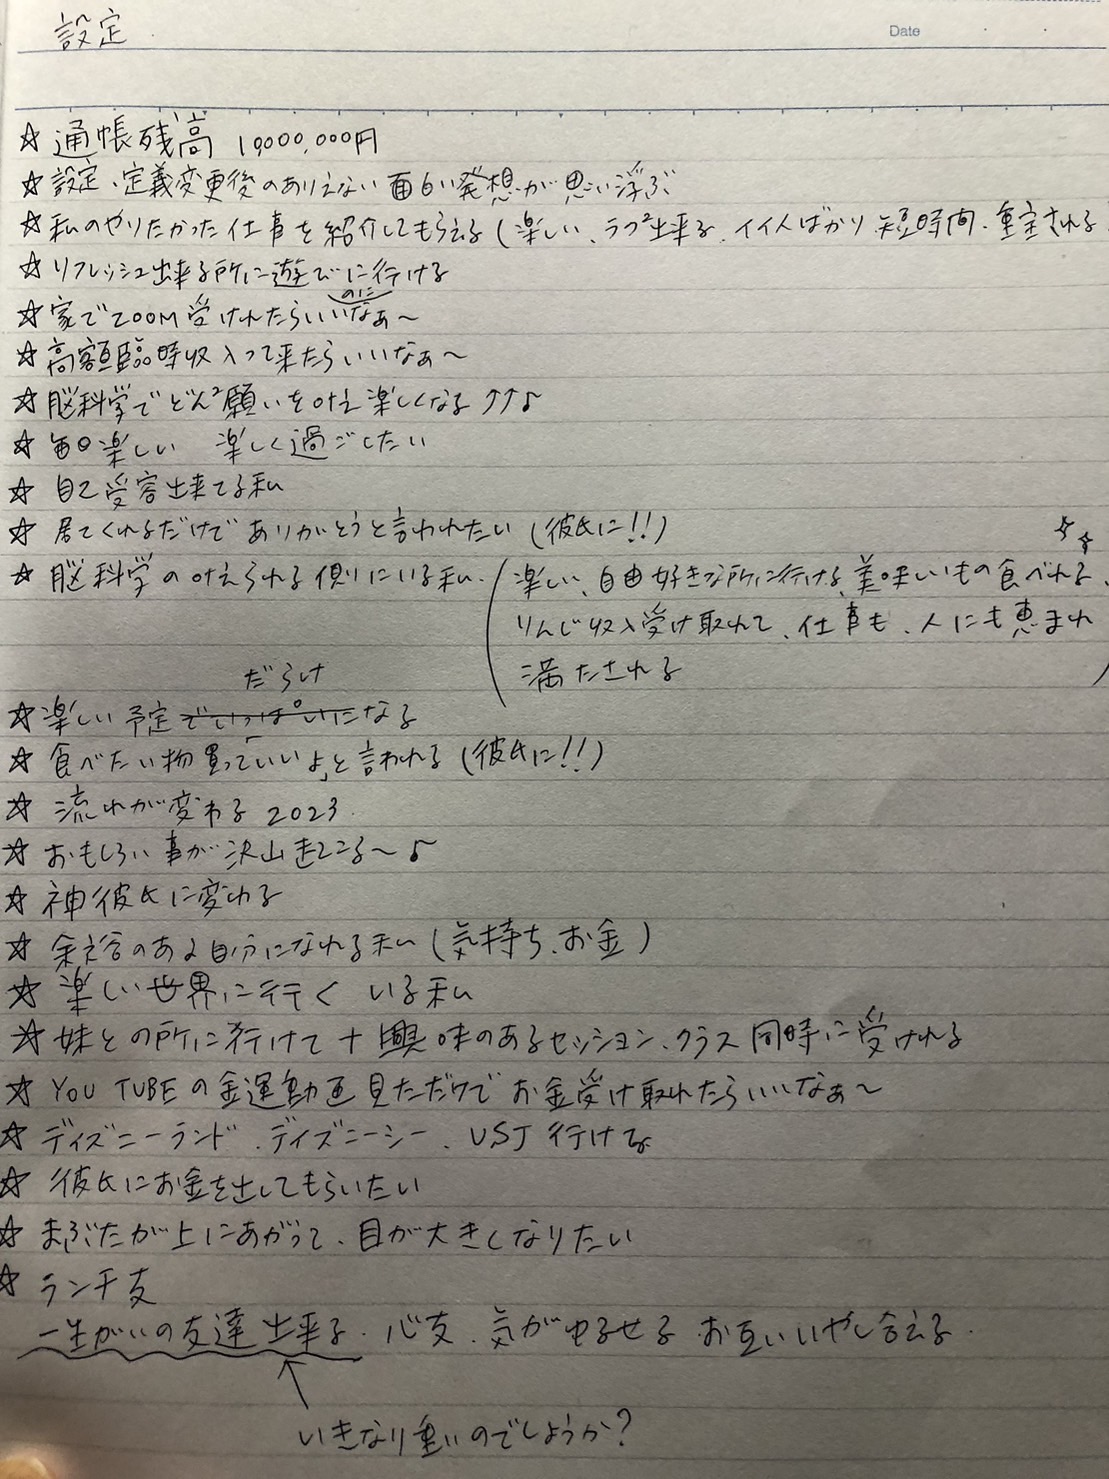 設定
Date
☆ 通帳残高 10,000,000円
☆ 設定、定義変更後のありえない面白い発想が思い浮ぶ
☆ 私のやりたかった仕事を紹介してもらえる(楽しい、ラブ²出来る、イイ人ばかり 短時間、重宝される
☆ リフレッシュ出来る所に遊びに行ける
のに
☆ 家でZOOM受けれたらいいなぁ〜
☆ 高額臨時収入って来たらいいなぁ〜
☆ 脳科学でどん²願いを叶え楽しくなる↑↑♪
☆ 毎日楽しい 楽しく過ごしたい
☆ 自己受容出来てる私
☆ 居てくれるだけでありがとうと言われたい(彼氏に!!)
☆ 脳科学の叶えられる側にいる私。(楽しい、自由好きな所に行ける、美味しいもの食べれる、
りんじ収入受け取れて、仕事も、人にも恵まれ
満たされる)
だらけ
☆ 楽しい予定でいっぱいになる
☆ 食べたい物買っていいよと言われる(彼氏に!!)
☆ 流れが変わる 2023
☆ おもしろい事が沢山起こる〜♪
☆ 神彼氏に変わる
☆ 余裕のある自分になれる私(気持ち、お金)
☆ 楽しい世界に行く いる私
☆ 妹との所に行けて+興味のあるセッション、クラス同時に受けれる
☆ YOU TUBEの金運動画見ただけでお金受け取れたらいいなぁ〜
☆ ディズニーランド、ディズニーシー、USJ 行ける
☆ 彼氏にお金を出してもらいたい
☆ まぶたが上にあがって、目が大きくなりたい
☆ ランチ友
一生がいの友達出来る、心友、気がゆるせる お互いいやし合える。
いきなり重いのでしょうか?